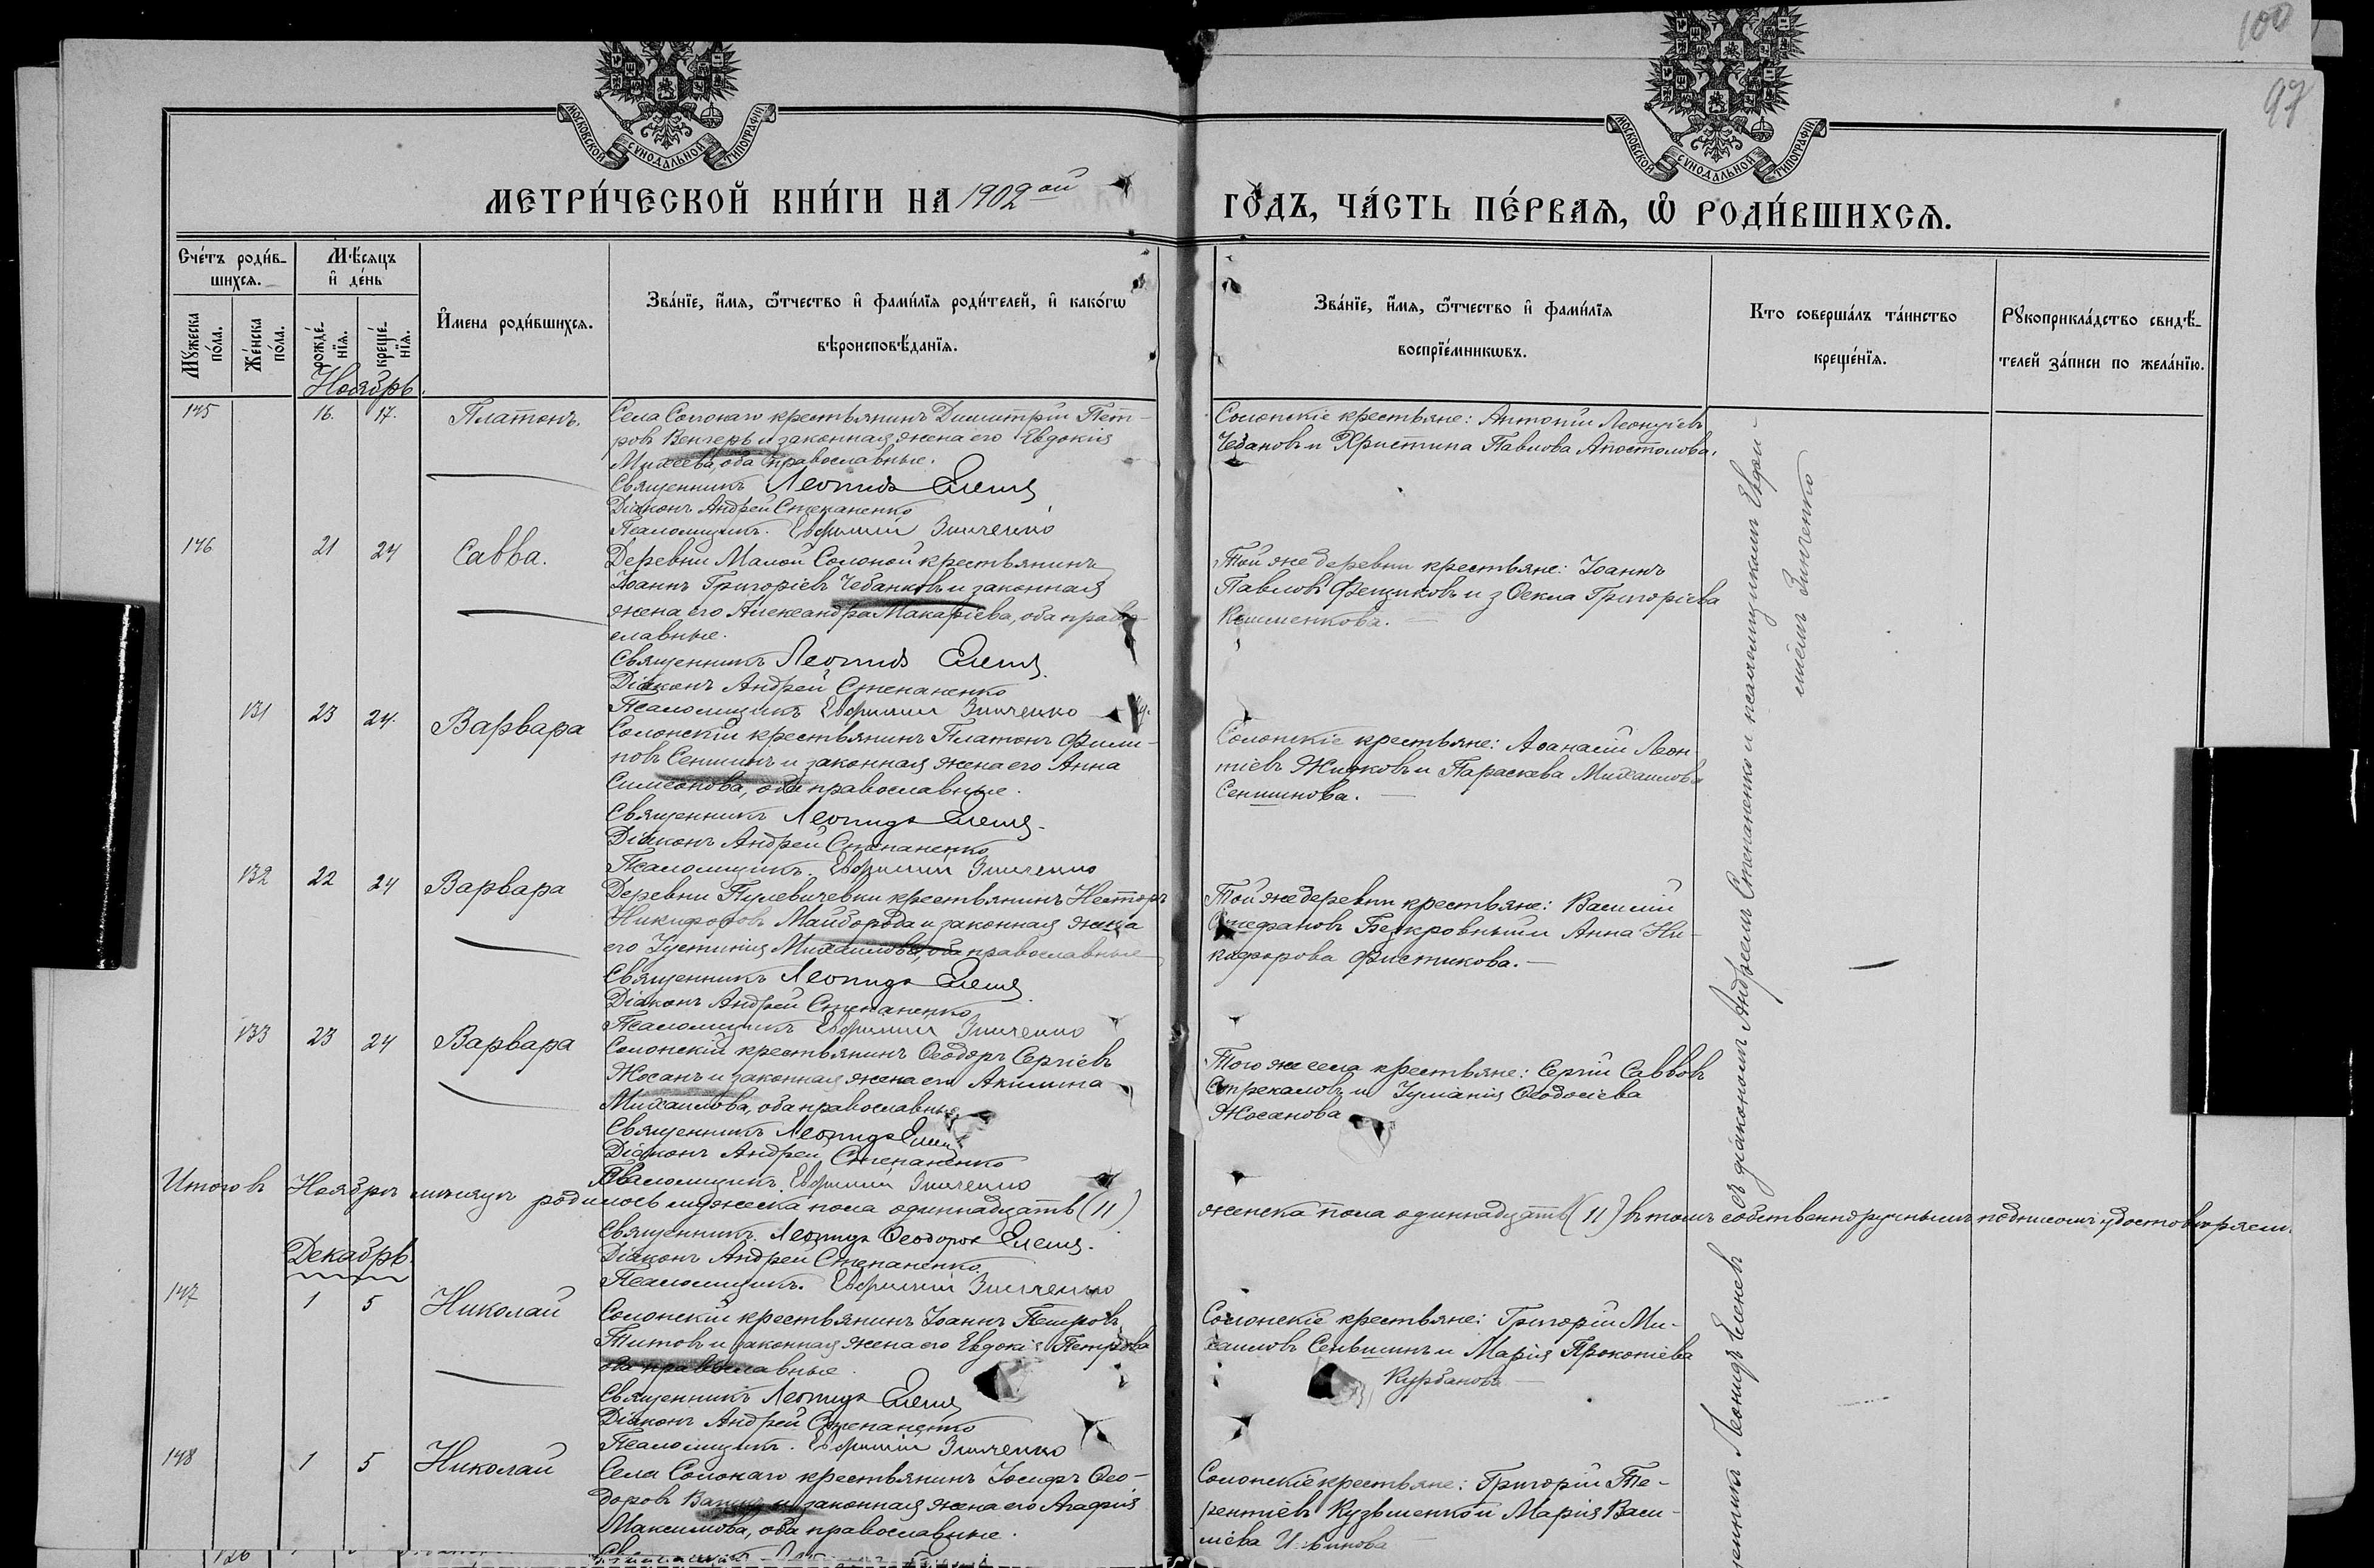 100
97
МОСКОВСКОЙ СУНОДАЛЬНОЙ ТИПОГРАФІИ
МОСКОВСКОЙ СУНОДАЛЬНОЙ ТИПОГРАФІИ
МЕТРИ́ЧЕСКОЙ КНИ́ГИ НА 1902 ой
ГО́ДЪ, ЧА́СТЬ ПЕ́РВАѦ, Ѽ РОДИ́ВШИХСѦ.
Сче́тъ роди́в-
шихсѧ.
Му́жеска по́ла.
Же́нска по́ла.
Мѣ́сѧцъ
и҆ де́нь
рожде́-нїѧ.
креще́-нїѧ.
И҆мена роди́вшихсѧ.
Зва́нїе, и҆́мѧ, ѻ҆́тчество и҆ фами́лїѧ роди́телей, и҆ како́гѡ
вѣроисповѣ́данїѧ.
Зва́нїе, и҆́мѧ, ѻ҆́тчество и҆ фами́лїѧ
воспрїе́мникѡвъ.
Кто соверша́лъ та́инство
креще́нїѧ.
Рꙋкоприкла́дство свидѣ́-
телей за́писи по жела́нїю.
Ноябрь.
145 16. 17. Платонъ.
Села Солонаго крестьянинъ Димитрій Пет-
ровъ Венгеръ и законная жена его Евдокія
Михеева, оба православные.
Священникъ Леонидъ Еленевъ
Діаконъ Андрей Степаненко
Псаломщикъ. Евфимій Зинченко
Солонскіе крестьяне: Антоній Леонтіевъ
Чебановъ и Христина Павлова Апостолова.
146 21 24 Савва.
Деревни Малой Солоной крестьянинъ
Іоаннъ Григоріевъ Чебанковъ и законная
жена его Александра Макаріева, оба право-
славные.
Священникъ Леонидъ Еленевъ
Діаконъ Андрей Степаненко
Псаломщикъ Евфимій Зинченко
Той же деревни крестьяне: Іоаннъ
Павловъ и Ѳекла Григоріева
131 23 24. Варвара
Солонскій крестьянинъ Платонъ Фили-
повъ Сеншинъ и законная жена его Анна
Симеонова, оба православные.
Священникъ Леонидъ Еленевъ
Діаконъ Андрей Степаненко
Псаломщикъ. Евфимій Зинченко
Солонскіе крестьяне: Аѳанасій Леон-
тіевъ Жидковъ и Параскева Михаилова
Сеншинова.
132 22 24 Варвара
Деревни Пулевичевки крестьянинъ Несторъ
Никифоровъ Майборода и законная жена
его Іустинія Михаилова, оба православные
Священникъ Леонидъ Еленевъ
Діаконъ Андрей Степаненко
Псаломщикъ Евфимій Зинченко
Той же деревни крестьяне: Василій
Стефановъ Безкровный и Анна Ни-
кифорова Фистикова.
133 23 24 Варвара
Солонскій крестьянинъ Ѳеодоръ Сергіевъ
Жосанъ и законная жена его Акилина
Михаилова, оба православные
Священникъ Леонидъ Еленевъ
Діаконъ Андрей Степаненко
Псаломщикъ. Евфимій Зинченко
Того же села крестьяне: Сергій Саввовъ
Стрекаловъ и Іуліанія Ѳеодосіева
Жосанова
Итого въ Ноябрѣ мѣсяцѣ родилось мужеска пола одиннадцать (11)
женска пола одиннадцать (11) въ томъ собственноручнымъ подписомъ удостовѣряемъ.
Священникъ. Леонидъ Ѳеодоровъ Еленевъ.
Діаконъ Андрей Степаненко.
Псаломщикъ. Евфимій Зинченко
Декабрь.
147 1 5 Николай
Солонскій крестьянинъ Іоаннъ Петровъ
Титовъ и законная жена его Евдокія Петрова
оба православные.
Священникъ Леонидъ Еленевъ
Діаконъ Андрей Степаненко
Псаломщикъ. Евфимій Зинченко
Солонскіе крестьяне: Григорій Ми-
хаиловъ Сеньшинъ и Марія Прокопіева
Курбанова
148 1 5 Николай
Села Солонаго крестьянинъ Іосифъ Ѳео-
доровъ и законная жена его Агафія
Максимова, оба православные.
Солонскіе крестьяне: Григорій Те-
рентіевъ Кузьменко и Марія Васи-
ліева
Леонидъ Еленевъ съ діакономъ Андреемъ Степаненко и псаломщикомъ Евфи-
міемъ Зинченко